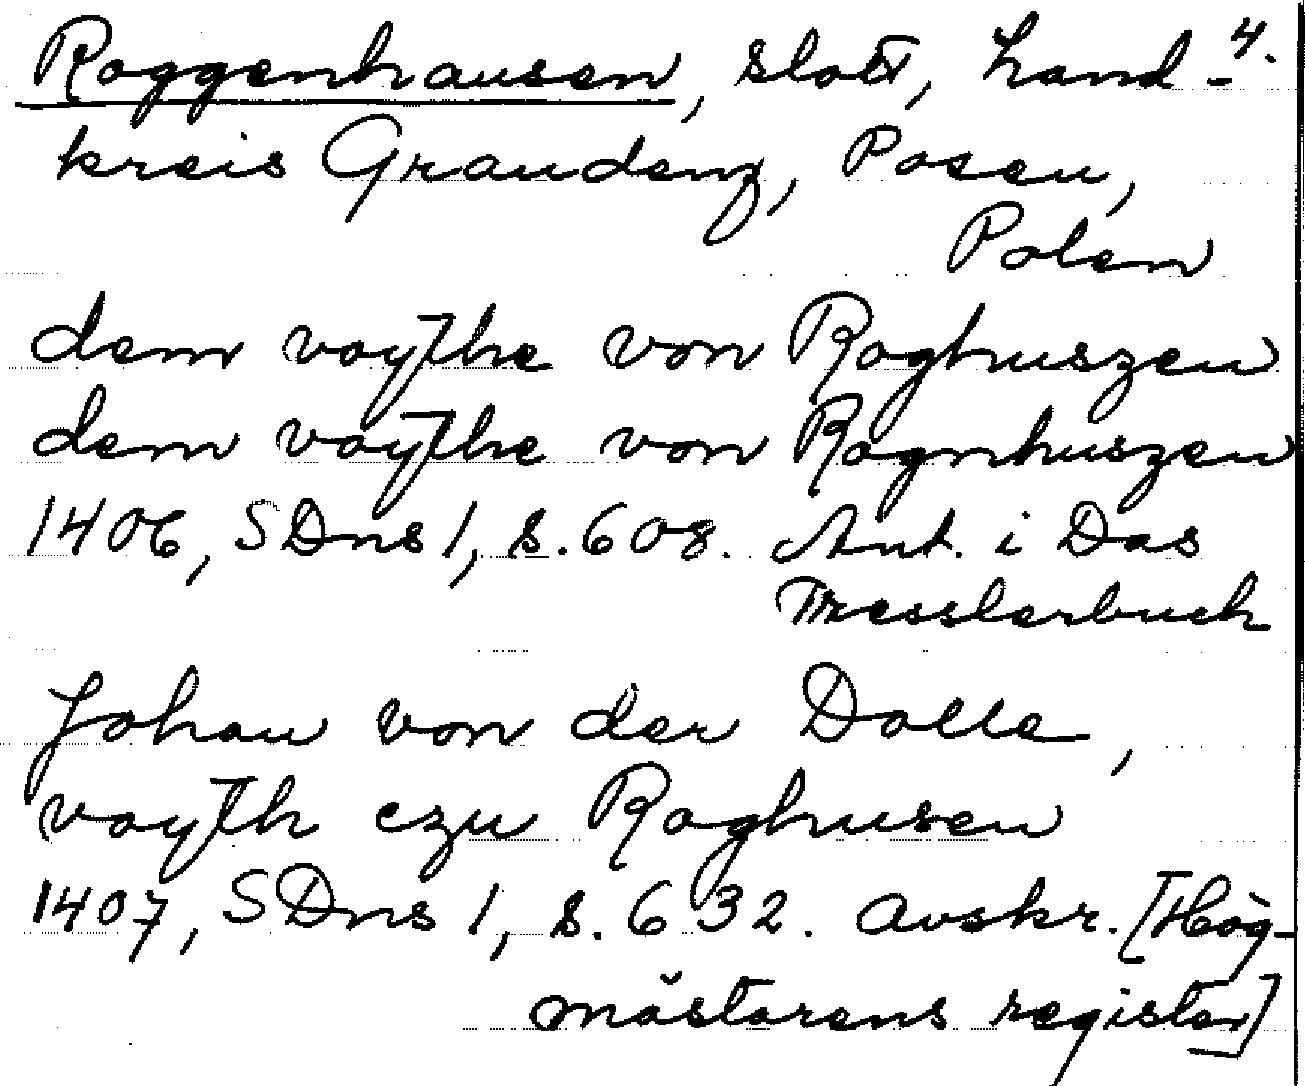 Roggenhausen, slott, Land- 4.
kreis Graudenz, Posen,
Polen
dem voythe von Roghuszen
dem voythe von Rognhuszen
1406, SDns 1, s. 608. Ant. i Das
Tresslerbuch
Johan von der Dolle,
voyth czu Roghusen
1407, SDns 1, s. 632. Avskr. [Hög-
mästarens register]